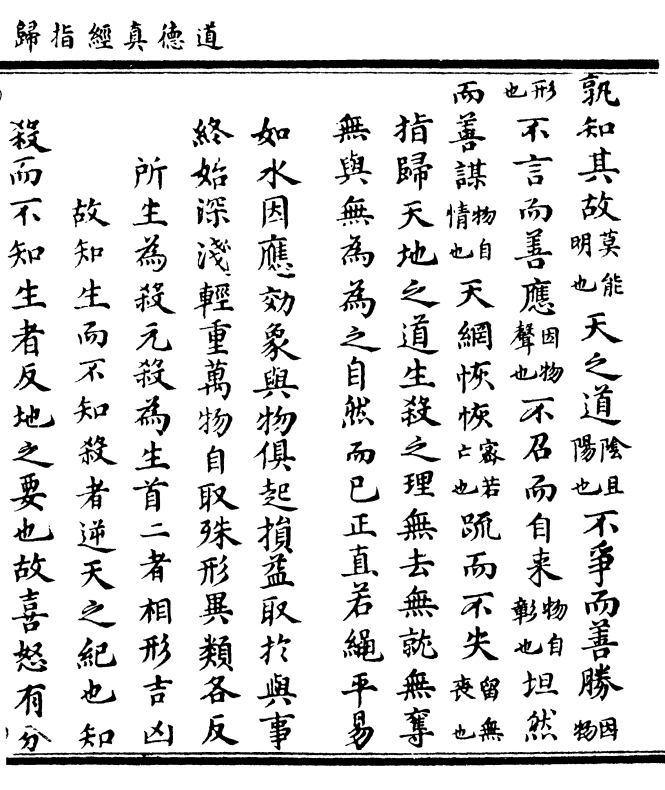 道德真經指歸
孰知其故莫能明也天之道陰且陽也不爭而善勝因物
形也不言而善應因物聲也不召而自来物自彰也坦然
而善謀物自情也天網恢恢宻若亡也踈而不失留無喪也
指歸天地之道生殺之理無去無就無奪
無與無為為之自然而已正直若繩平易
如水因應効象與物俱起損益取於與事
終始深淺輕重萬物自取殊形異類各反
所生為殺元殺為生首二者相形吉凶
故知生而不知殺者逆天之紀也知
殺而不知生者反地之要也故喜怒有分